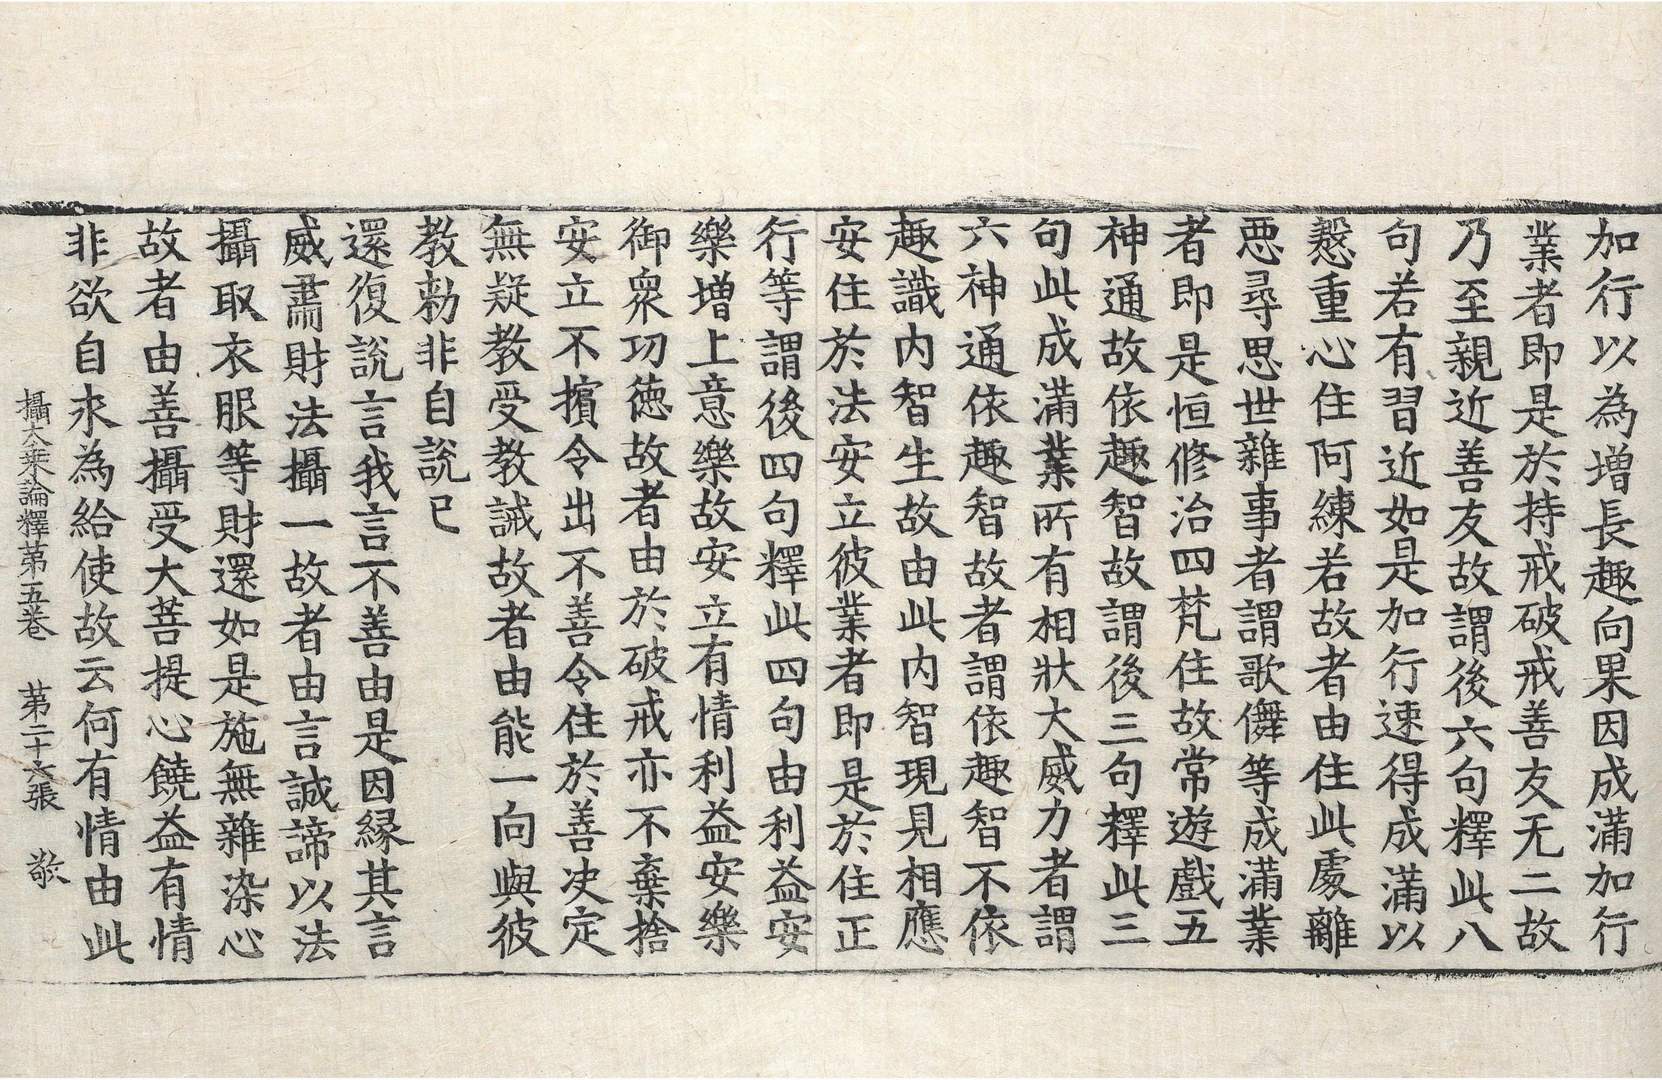 加行以為增長趣向果因成滿加行
業者即是於持戒破戒善友无二故
乃至親近善友故謂後六句釋此八
句若有習近如是加行速得成滿以
慇重心住阿練若故者由住此處離
惡尋思世雜事者謂歌儛等成滿業
者即是恒修治四梵住故常遊戲五
神通故依趣智故謂後三句釋此三
句此成滿業所有相狀大威力者謂
六神通依趣智故者謂依趣智不依
趣識内智生故由此内智現見相應
安住於法安立彼業者即是於住正
行等謂後四句釋此四句由利益安
樂增上意樂故安立有情利益安樂
御衆功德故者由於破戒亦不棄捨
安立不擯令出不善令住於善決定
無疑教受教誡故者由能一向與彼
教勑非自說已
還復說言我言不善由是因緣其言
威肅財法攝一故者由言誠諦以法
攝取衣服等財還如是施無雜染心
故者由善攝受大菩提心饒益有情
非欲自求為給使故云何有情由此
攝大乘論釋第五卷 第二十六張 敬